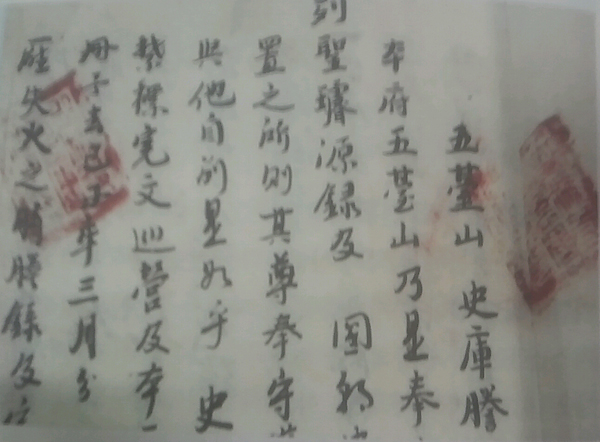 五臺山 史庫謄
本府五臺山乃是奉
列聖璿源録及 國朝
置之所則其尊奉守
與他自別是如乎 史
完文巡營及本
冊子去己丑年三月分
失火之時謄録及